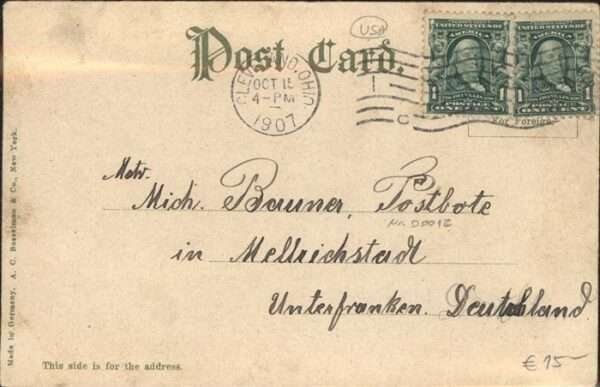 USA
Post Card.
UNITED STATES OF AMERICA
UNITED STATES OF AMERICA
CLEVELAND, OHIO
OCT 15
4-PM
1907
1 POSTAGE 1
ONE CENT
1 POSTAGE 1
ONE CENT
For Foreign
Mich. Bauner, Postbote
in Mellrichstadt
Unterfranken. Deutschland.
Made in Germany, A. C. Bosselman & Co., New York.
This side is for the address.
€ 15-